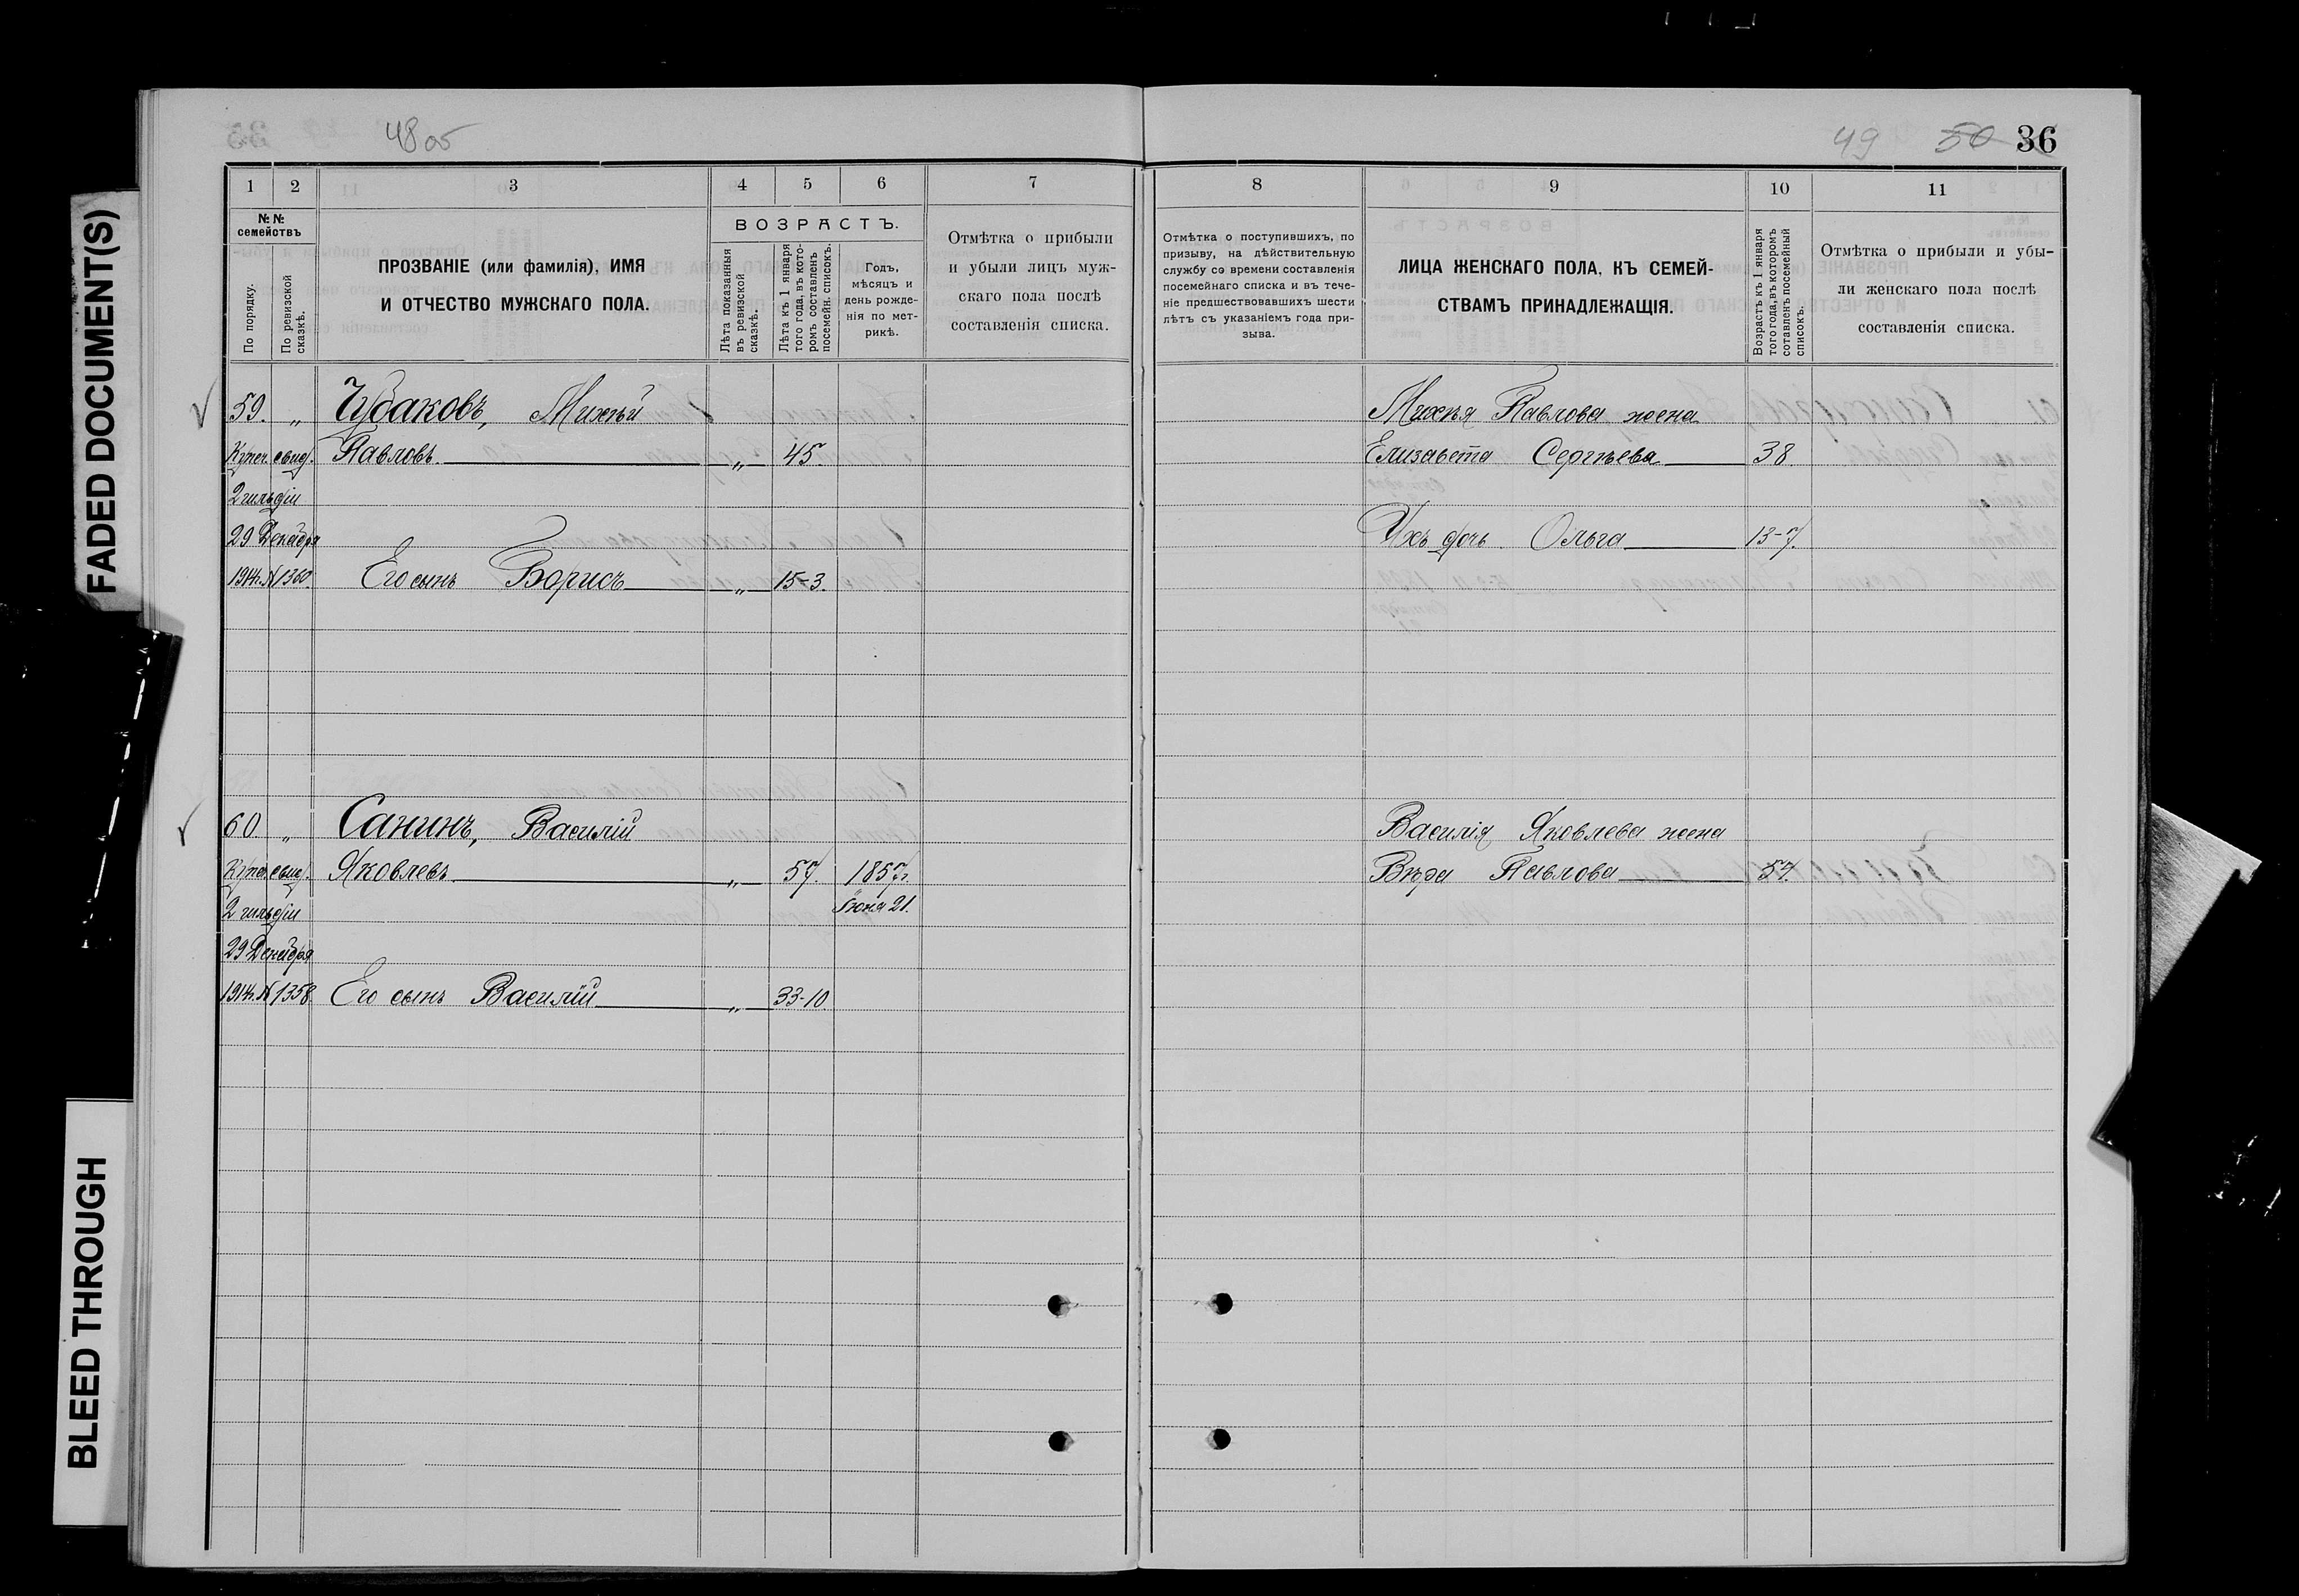 FADED DOCUMENT(S)
BLEED THROUGH
48 об
1
2
3
4
5
6
7
№ №
семействъ
По порядку.
По ревизской
сказкѣ.
ПРОЗВАНІЕ (или фамилія), ИМЯ
И ОТЧЕСТВО МУЖСКАГО ПОЛА.
ВОЗРАСТЪ.
Лѣта показанныя
въ ревизской
сказкѣ.
Лѣта къ 1 января
того года, въ кото-
ромъ составленъ
посемейн. списокъ.
Годъ,
мѣсяцъ и
день рожде-
нія по мет-
рикѣ.
Отмѣтка о прибыли
и убыли лицъ муж-
скаго пола послѣ
составленія списка.
59. „ Чубаковъ, Михѣй
Купеч. свид. Павловъ „ 45.
2 гильдіи
29 Декабря
1914г. № 1360. Его сынъ Борисъ „ 15-3.
60 „ Санинъ, Василій
Купеч. свид. Яковлевъ „ 57. 1857г.
2 гильдіи Іюня 21.
29 Декабря
1914г. № 1358. Его сынъ Василій „ 33-10.
49 50 36
8
9
10
11
Отмѣтка о поступившихъ, по
призыву, на дѣйствительную
службу со времени составленія
посемейнаго списка и въ тече-
ніе предшествовавшихъ шести
лѣтъ съ указаніемъ года при-
зыва.
ЛИЦА ЖЕНСКАГО ПОЛА, КЪ СЕМЕЙ-
СТВАМЪ ПРИНАДЛЕЖАЩІЯ.
Возрастъ къ 1 января
того года, въ которомъ
сотавленъ посемейный
списокъ.
Отмѣтка о прибыли и убы-
ли женскаго пола послѣ
составленія списка.
Михѣя Павлова жена
Елизавета Сергѣева 38.
Ихъ дочь Ольга 13-7.
Василія Яковлева жена
Вѣра Павлова 57.